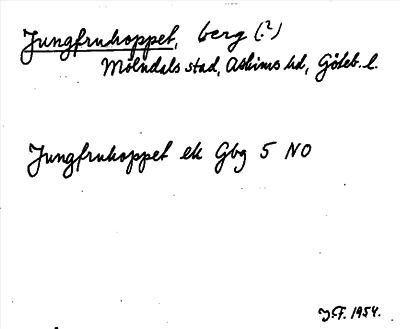 Jungfruhoppet, berg (?)
Mölndals stad, Askims hd, Göteb. l.
Jungfruhoppet ek Gbg 5 NO
J.F. 1954.